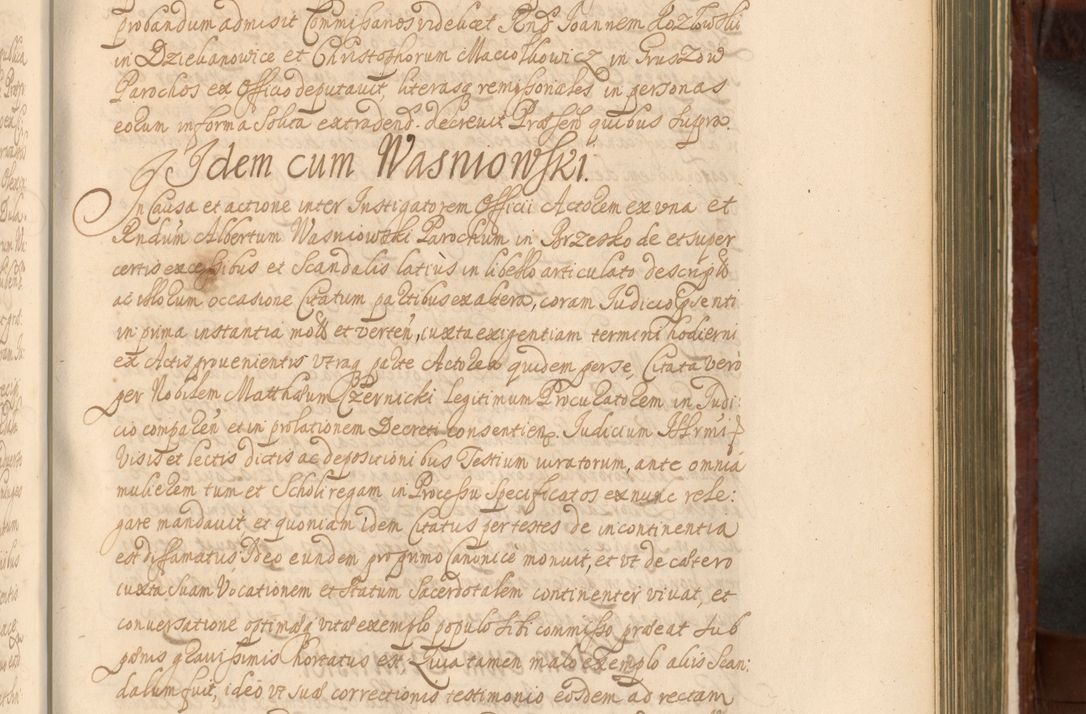 probandum admisit Commissarios videlicet Rnd: Joannem Kozłowski
in Dziekanowice et Christophorum Maciołkowicz in Gruszow
Parochos ex Officio deputavit, literasq remissoriales in personas
eorum in forma Solita extradend: decrevit Præsen quibus Supra.
Idem cum Wasniowski.
In Causa et actione inter Instigatorem Officii Actorem ex una et
Rndum Albertum Wasniowski Parochum in Brzesko de et super
certis excessibus et Scandalis latius in libello articulato descriptis
ac illorum occasione Citatum partibus ex altera, coram Judicio Præsenti
in prima instantia mots et verten, iuxta exigentiam termini hodierni
ex Actis provenientis utraq parte Actorea quidem per se, Citata vero
per Nobilem Matthæum Czernicki legitimum Procuratorem in Judi:
cio comparen et in prolationem Decreti consentien. Judicium
Visis et lectis dictis ac depositionibus Testium iuratorum, ante omnia
mulierem tum et Scholiregam in Processu Specificatos ex nunc rele:
gare mandavit, et quoniam idem Citatus per testes de incontinentia
est diffamatus Ideo eundem pro primo Canonice monuit, et ut de cætero
iuxta Suam Vocationem et Statum Sacerdotalem continenter vivat, et
conversatione optimaq vitæ exemplo populo Sibi commisso præeat Sub
pænis gravissimis hortatus est. Quia tamen malo exemplo aliis Scan:
dalum fuit, ideo ut suæ correctionis testimonio eosdem ad rectam